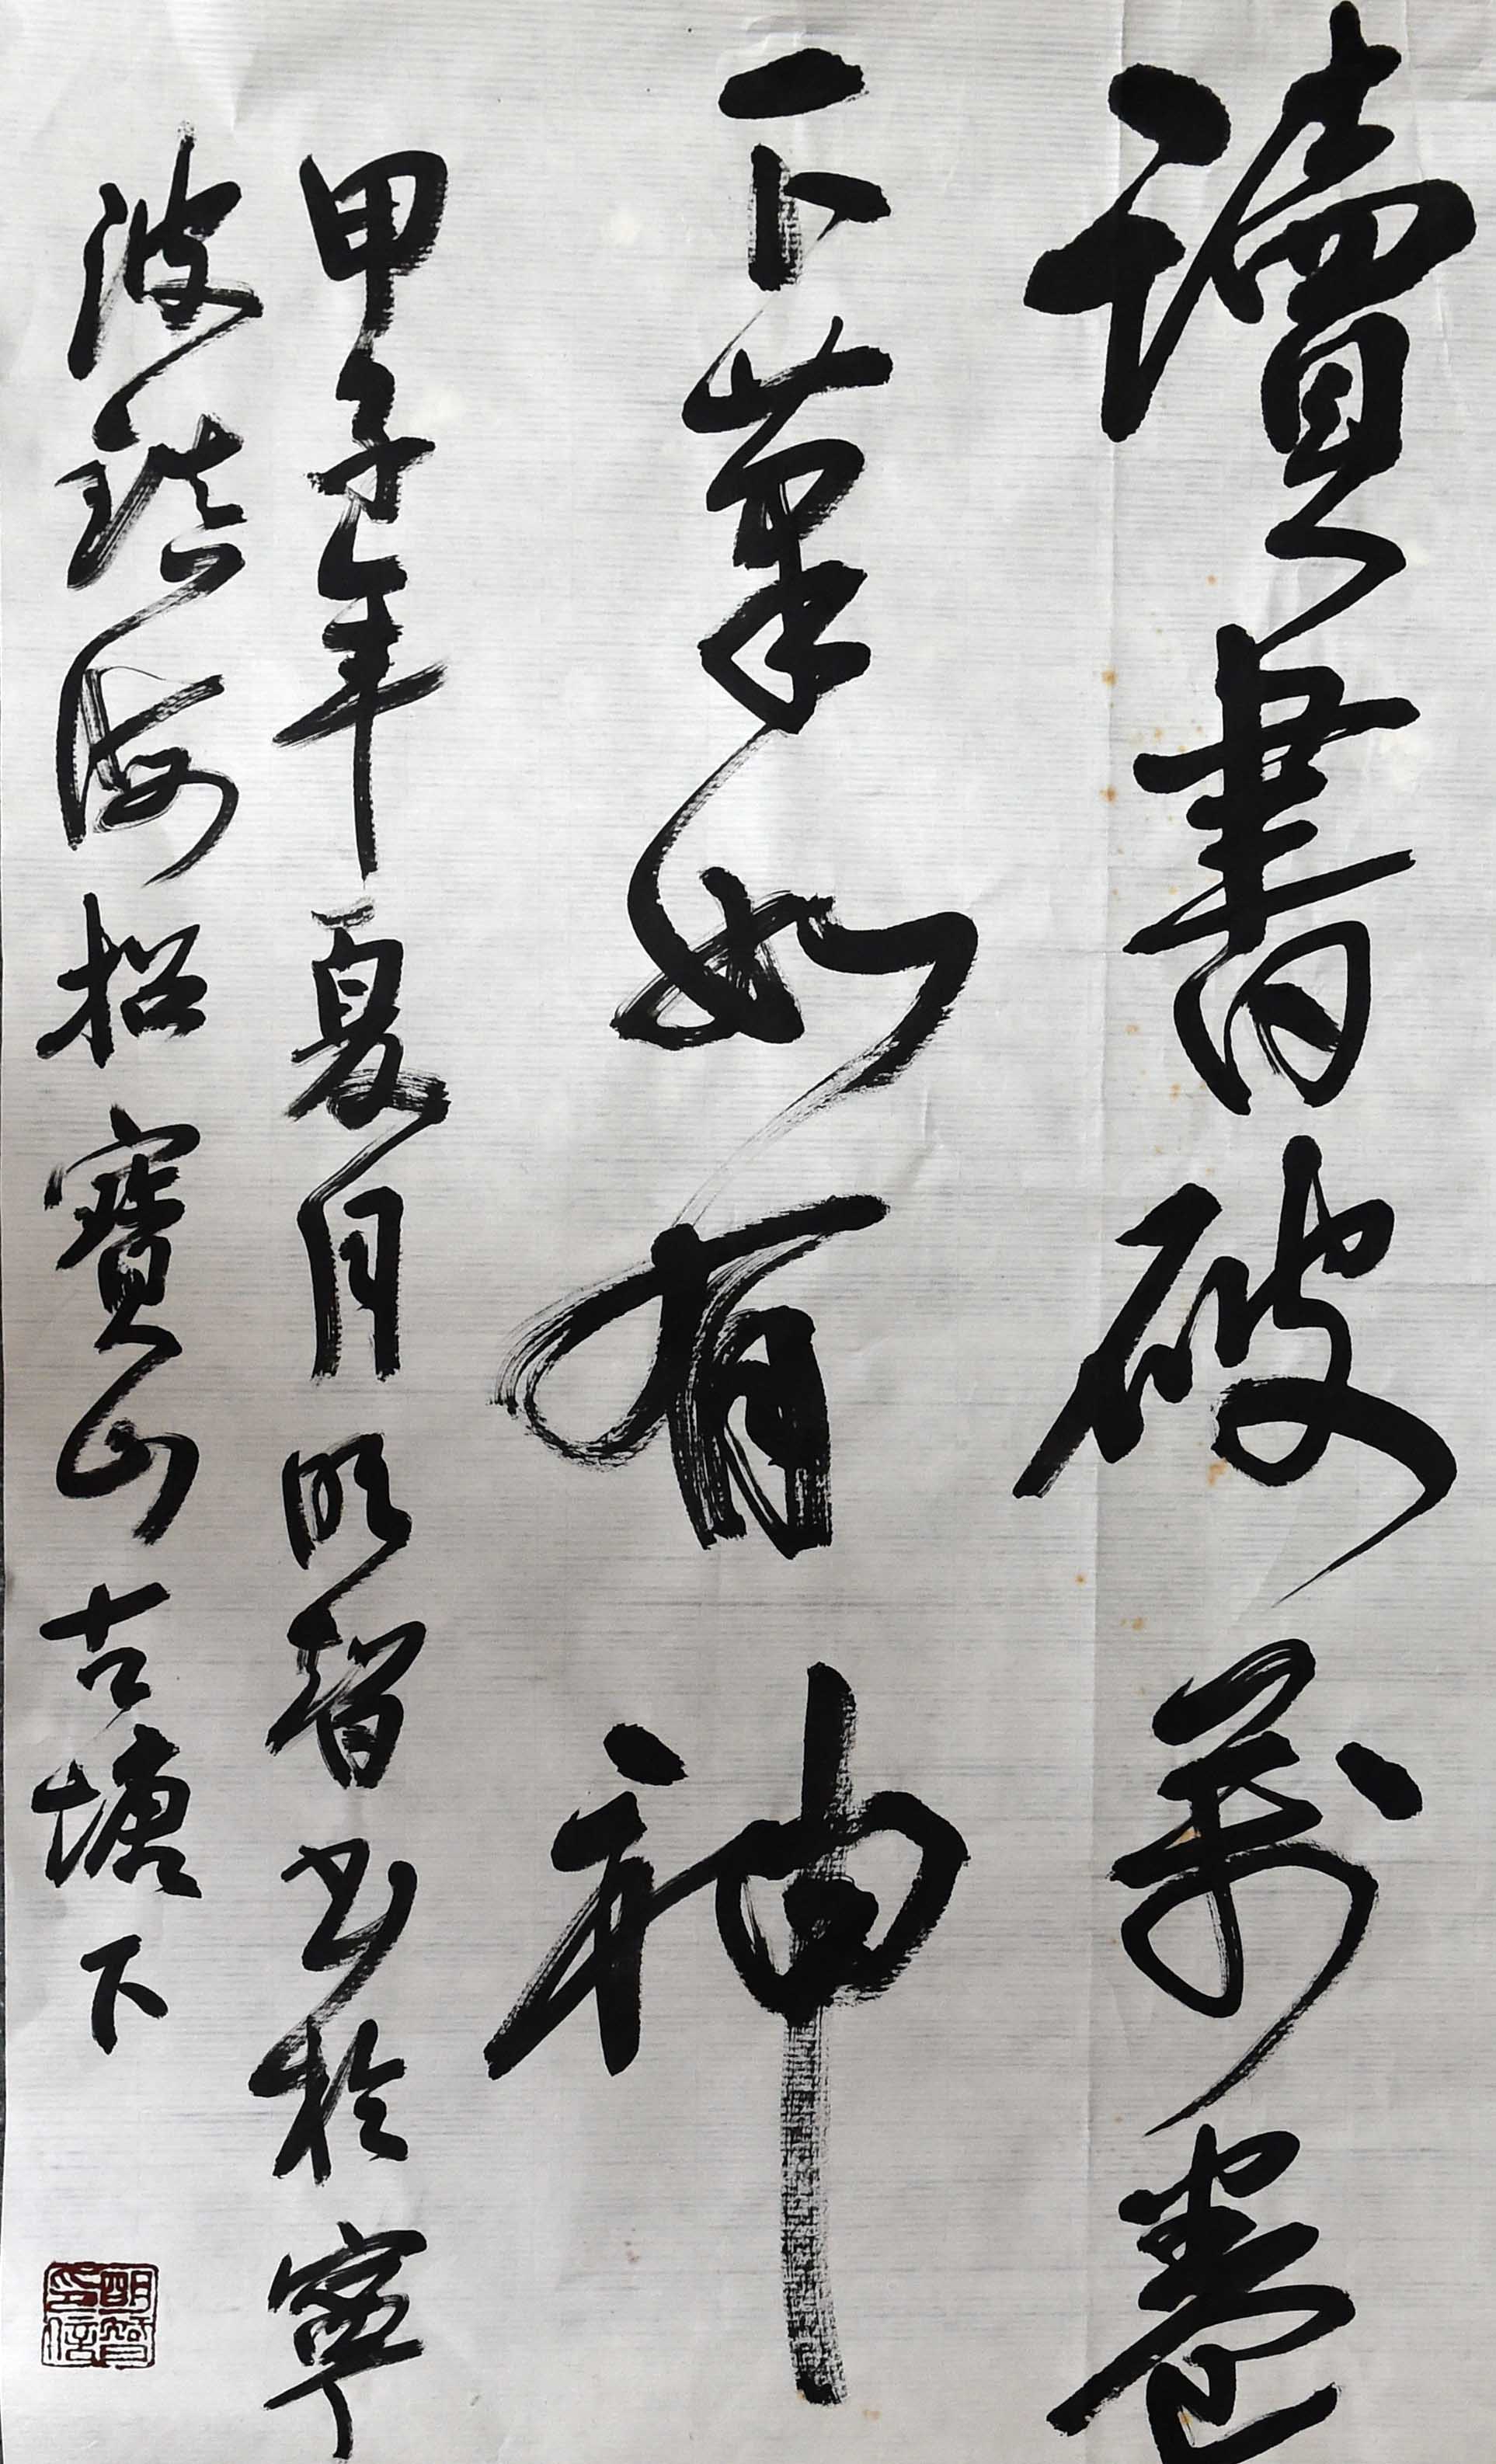 讀書破萬卷
下筆如有神
甲子年夏月明智书於寧
波镇海招寶山古塘下
明智印信